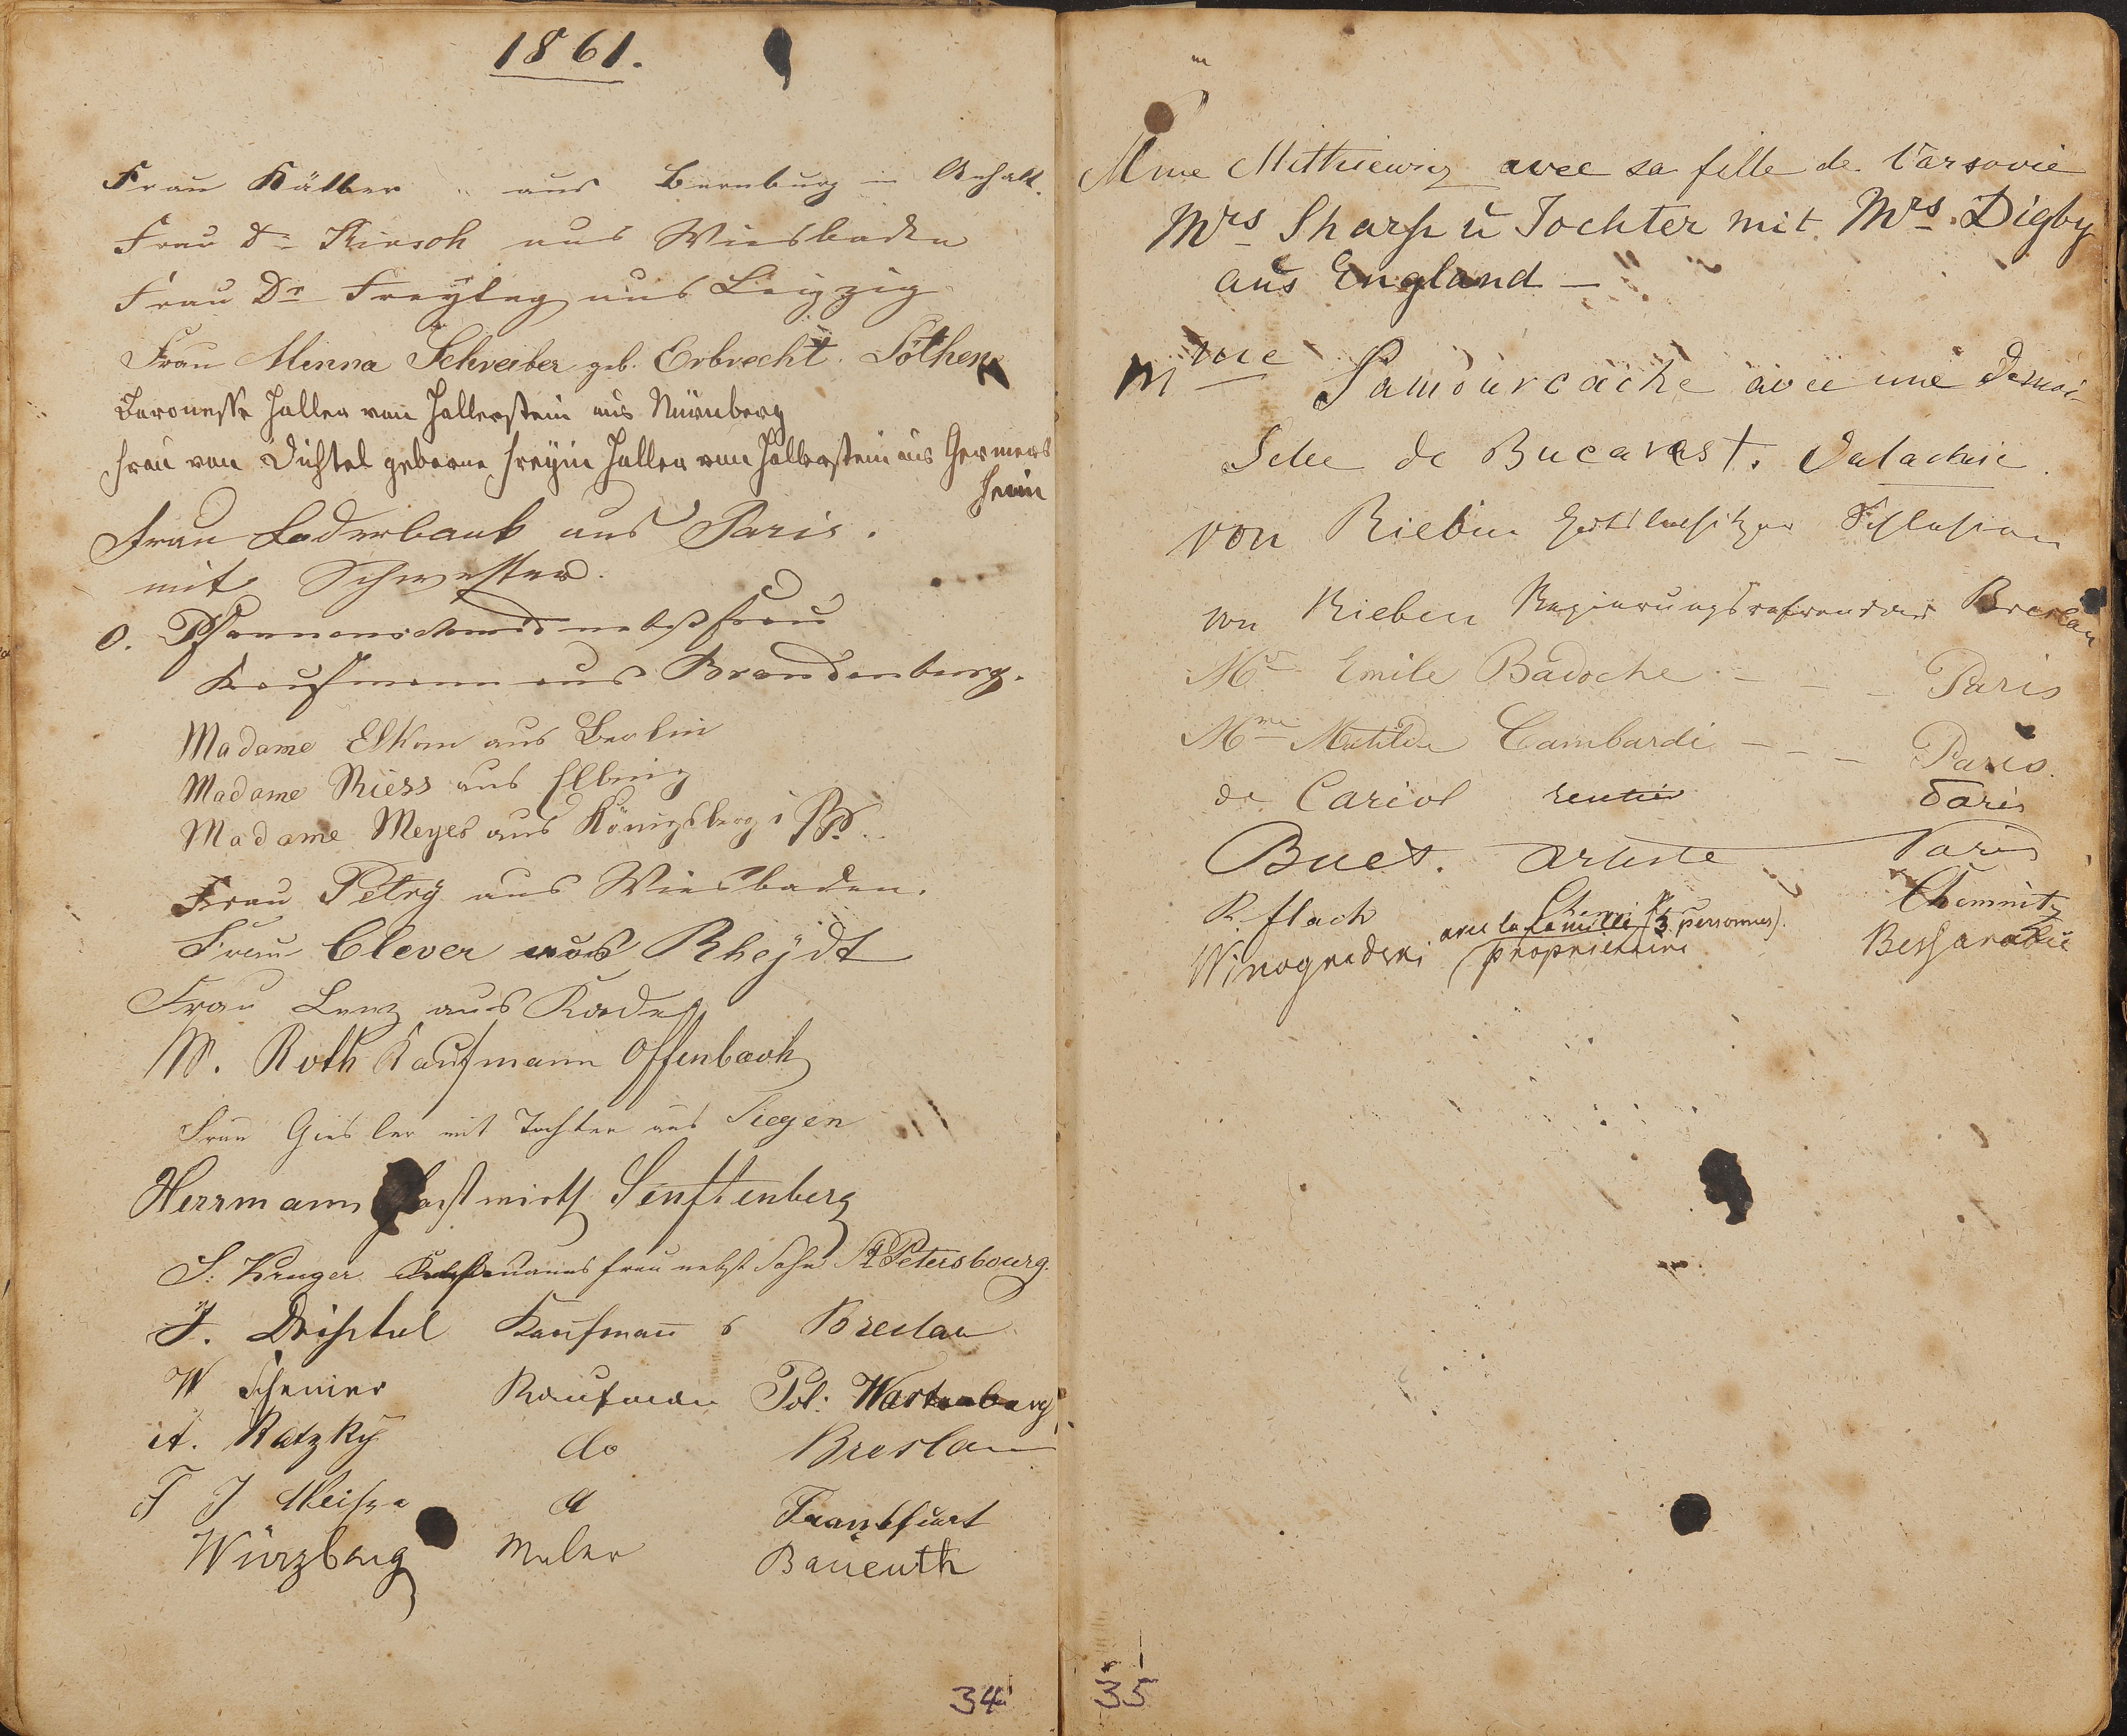 1861.
Frau Kälber aus Bernburg in Anhalt.
Frau Dr Kirsch aus Wiesbaden
Frau Dr Freytag aus Leipzig
Frau Minna Schreiber geb. Erbrecht. Cöthen
Baronesse Haller von Hallerstein aus Nürnberg
Frau von Dichtel geborne Freyin Haller von Hallerstein aus Germers
heim
Frau Laderbank aus Paris.
mit Schwester.
O. Pfannenschmidt nebst Frau
Kaufmann aus Brandenburg.
Madame Elkan aus Berlin
Madame Riess aus Elbing
Madame Meyer aus Königsberg i Pr.
Frau Petry aus Wiesbaden.
Frau Clever aus Rheydt
Frau Lenz aus
W. Roth Kaufmann Offenbach
Frau Giesler mit Tochter aus Siegen
Herrmann Gastwirth Senftenberg
S. Kruger Kaufmannsfrau nebst Sohn St Petersbourg.
J. Kaufmann Breslau
W Kaufmann Pol: Wartenberg
A. Ratzky do Breslau
F J Frankfurt
Würzburg Maler Baireuth
34
Mme avec sa fille de Varsovie
Mrs Sharp u Tochter mit Mrs. Digby
aus England —
Mme Samourcache avec une Demoi-
selle de Bucarest. Valachie.
von Rieben Gutsbesitzer Schlesien
von Rieben Regierungsreferendar Breslau
Mr Emile Badoche - - - Paris
Mme Matilde Cambardi - - - Paris.
de Cariol rentier Paris
Buet. Artiste Paris
R. Flach Chemnitz
avec la famille (3 personnes).
Winogradski propriétaire Bessarabie
35